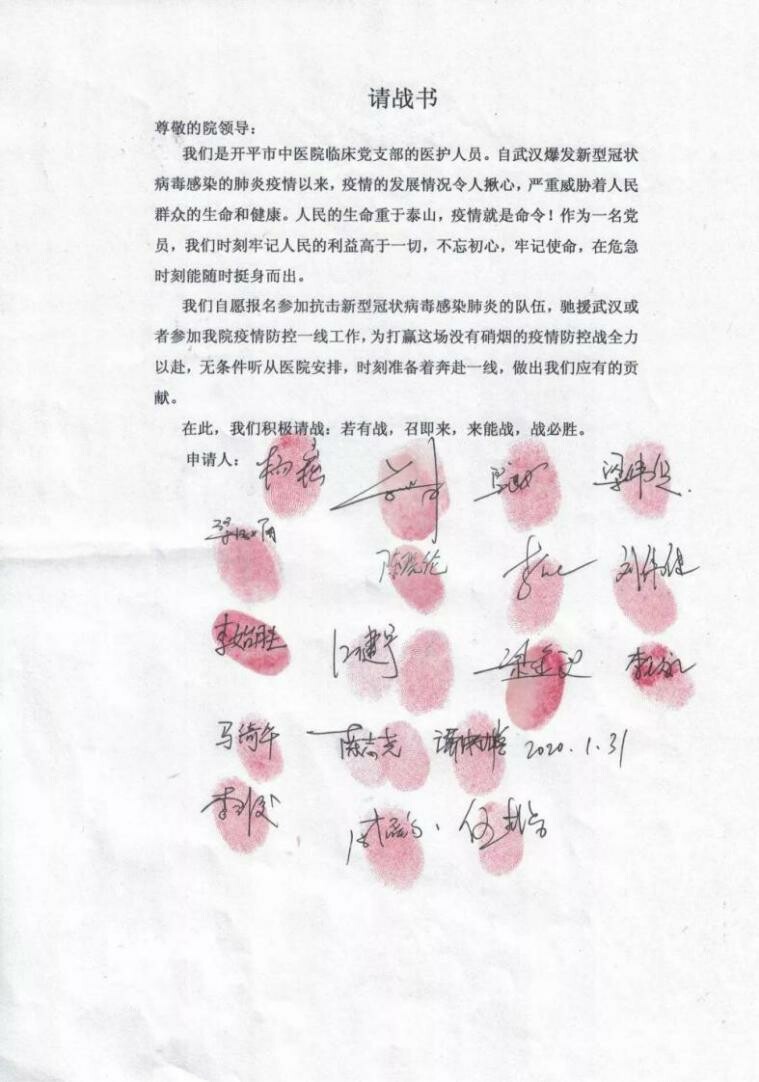 请战书
尊敬的院领导：
我们是开平市中医院临床党支部的医护人员。自武汉爆发新型冠状
病毒感染的肺炎疫情以来，疫情的发展情况令人揪心，严重威胁着人民
群众的生命和健康。人民的生命重于泰山，疫情就是命令！作为一名党
员，我们时刻牢记人民的利益高于一切，不忘初心，牢记使命，在危急
时刻能随时挺身而出。
我们自愿报名参加抗击新型冠状病毒感染肺炎的队伍，驰援武汉或
者参加我院疫情防控一线工作，为打赢这场没有硝烟的疫情防控战全力
以赴，无条件听从医院安排，时刻准备着奔赴一线，做出我们应有的贡
献。
在此，我们积极请战：若有战，召即来，来能战，战必胜。
申请人：
刘伟健
李始胜
马绮华 陈志尧 2020.1.31